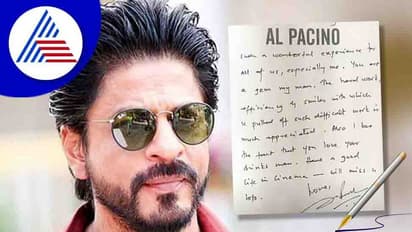 AL PACINO
Such a wonderful experience for
all of us, especially me. You are
a gem my man. The hard work,
efficiency & smiles with which
u pulled off each difficult work is
much appreciated. Also I love
the fact that you love your
drinks man. Have a good
life in cinema – will miss u
lots. Love,